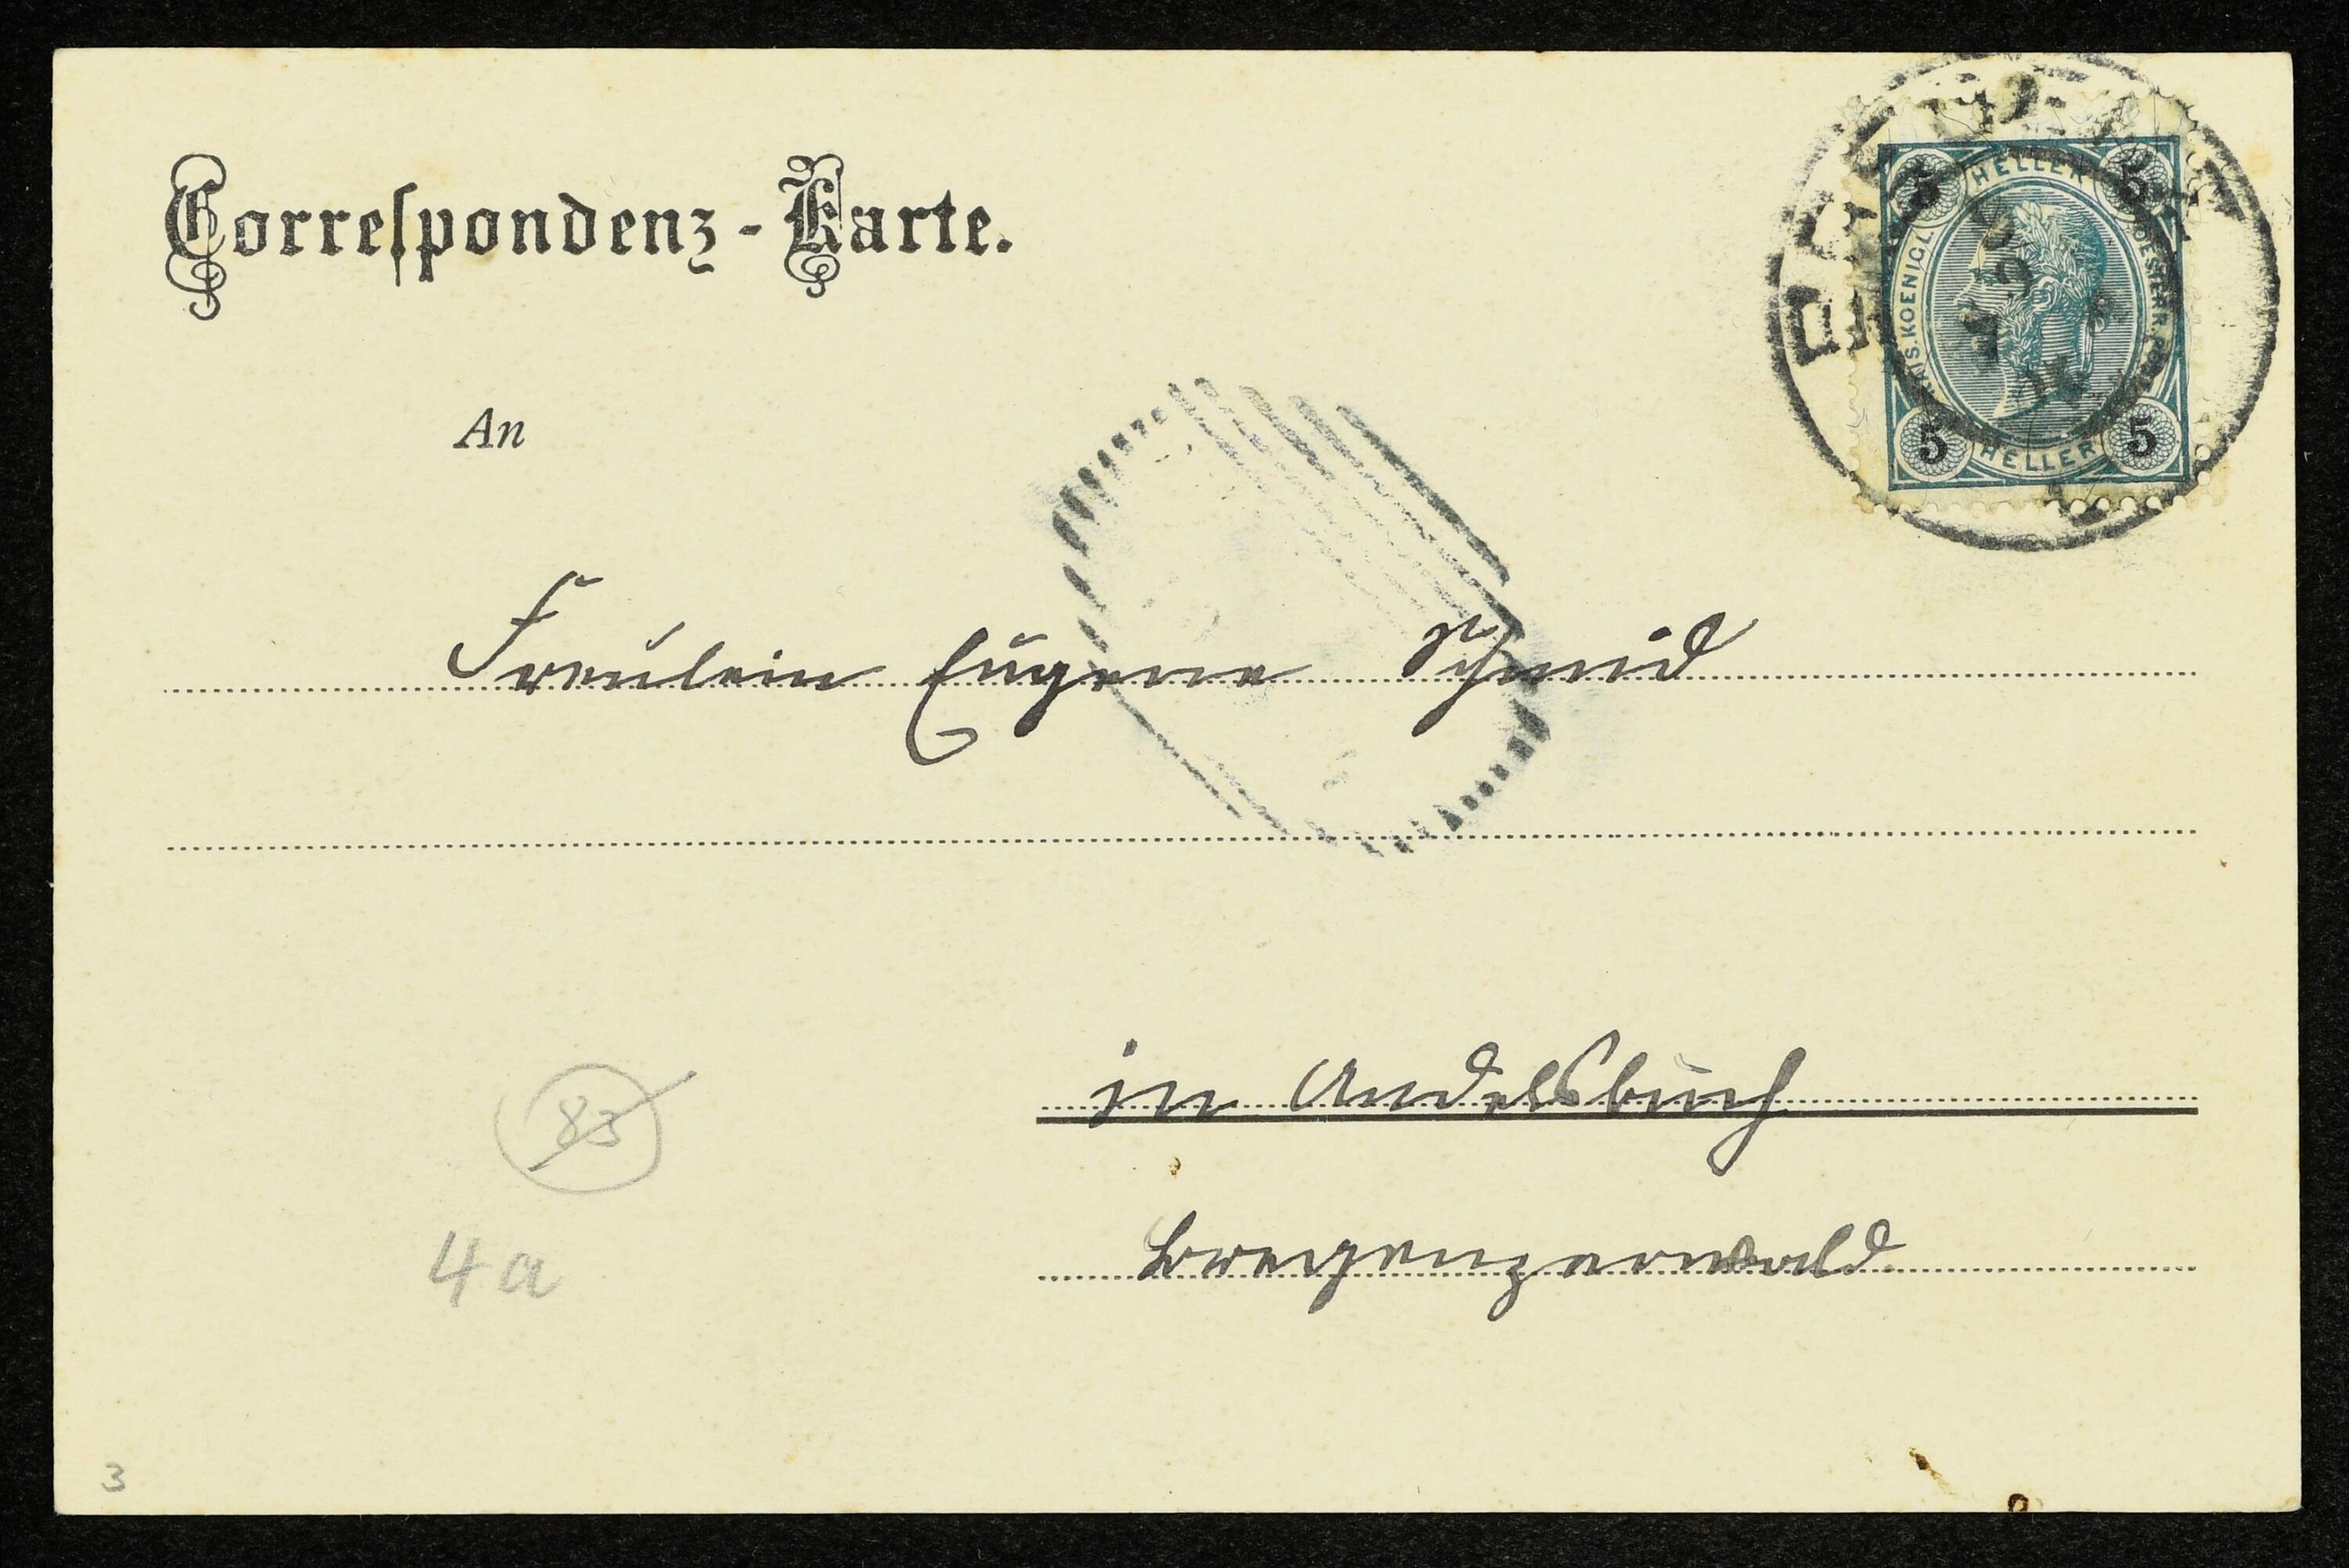 Correspondenz-Karte.
HELLER
5 5
KAIS. KOENIGL. OESTERR. POST
5 5
HELLER
An
Freulein Eugene Schmid
in Andelsbuch
Bregenzerwald
83
4a
3